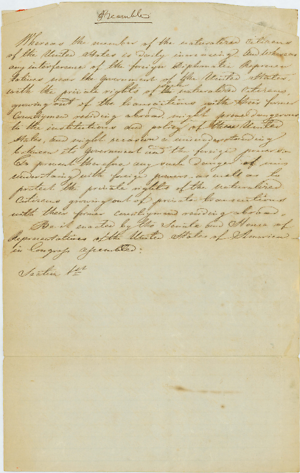 Preamble
Whereas the number of the naturalized citizens
of the United States is daily increasing and whereas
any interference of the foreign diplomatic Represen
tatives near the government of the United States,
with the private rights of the naturalized citizens,
growing out of the transactions with their former
Countrymen residing abroad, might prove dangerous
to the institutions and policy of the United
States, and might occasion misunderstanding
between its government and the foreign powers
to prevent therefore any such danger of mis
understanding with foreign powers, as well as to
protect the private rights of the naturalized
citizens growing out of private transactions
with their former countrymen residing abroad.
Be it enacted by the Senate and House of
Representatives of the United States of America
in Congress assembled:
Section 1st